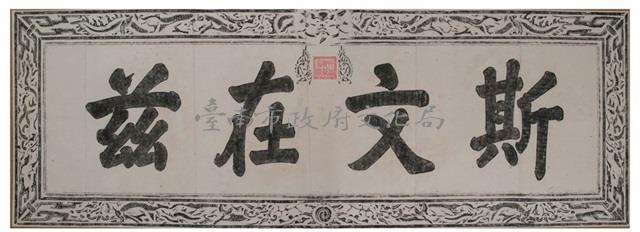 斯文在茲
臺南市政府文化局